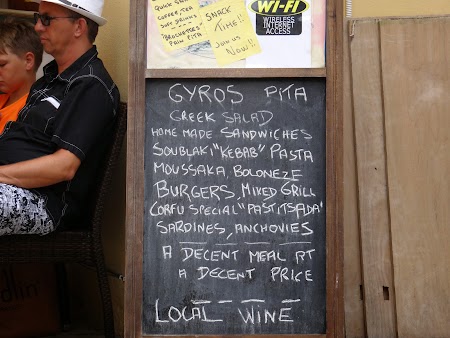 QUICK SNACK
COFFEE, TEA
SOFT DRINKS
BROCHETTES
PORK PITA
SNACK
TIME!!
JOIN US
NOW!!
Wi-Fi
WIRELESS
INTERNET
ACCESS
GYROS PITA
GREEK SALAD
HOME MADE SANDWICHES
SOUBLAKI "KEBAB" PASTA
MOUSSAKA, BOLONEZE
BURGERS, MIXED GRILL
CORFU SPECIAL "PASTITSADA"
SARDINES, ANCHOVIES
A DECENT MEAL AT
A DECENT PRICE
LOCAL WINE